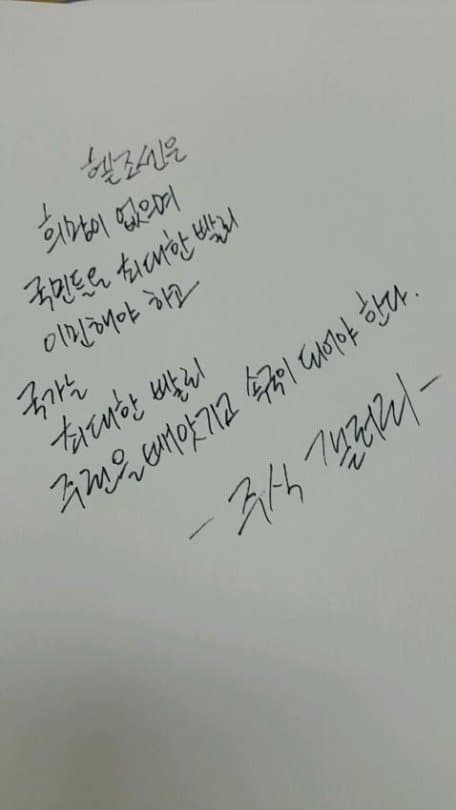 헬조선은
희망이 없으며
국민들은 최대한 빨리
이민해야 하고
국가는
최대한 빨리
주권을 빼앗기고 속국이 되어야 한다.
- 주식 갤러리 -